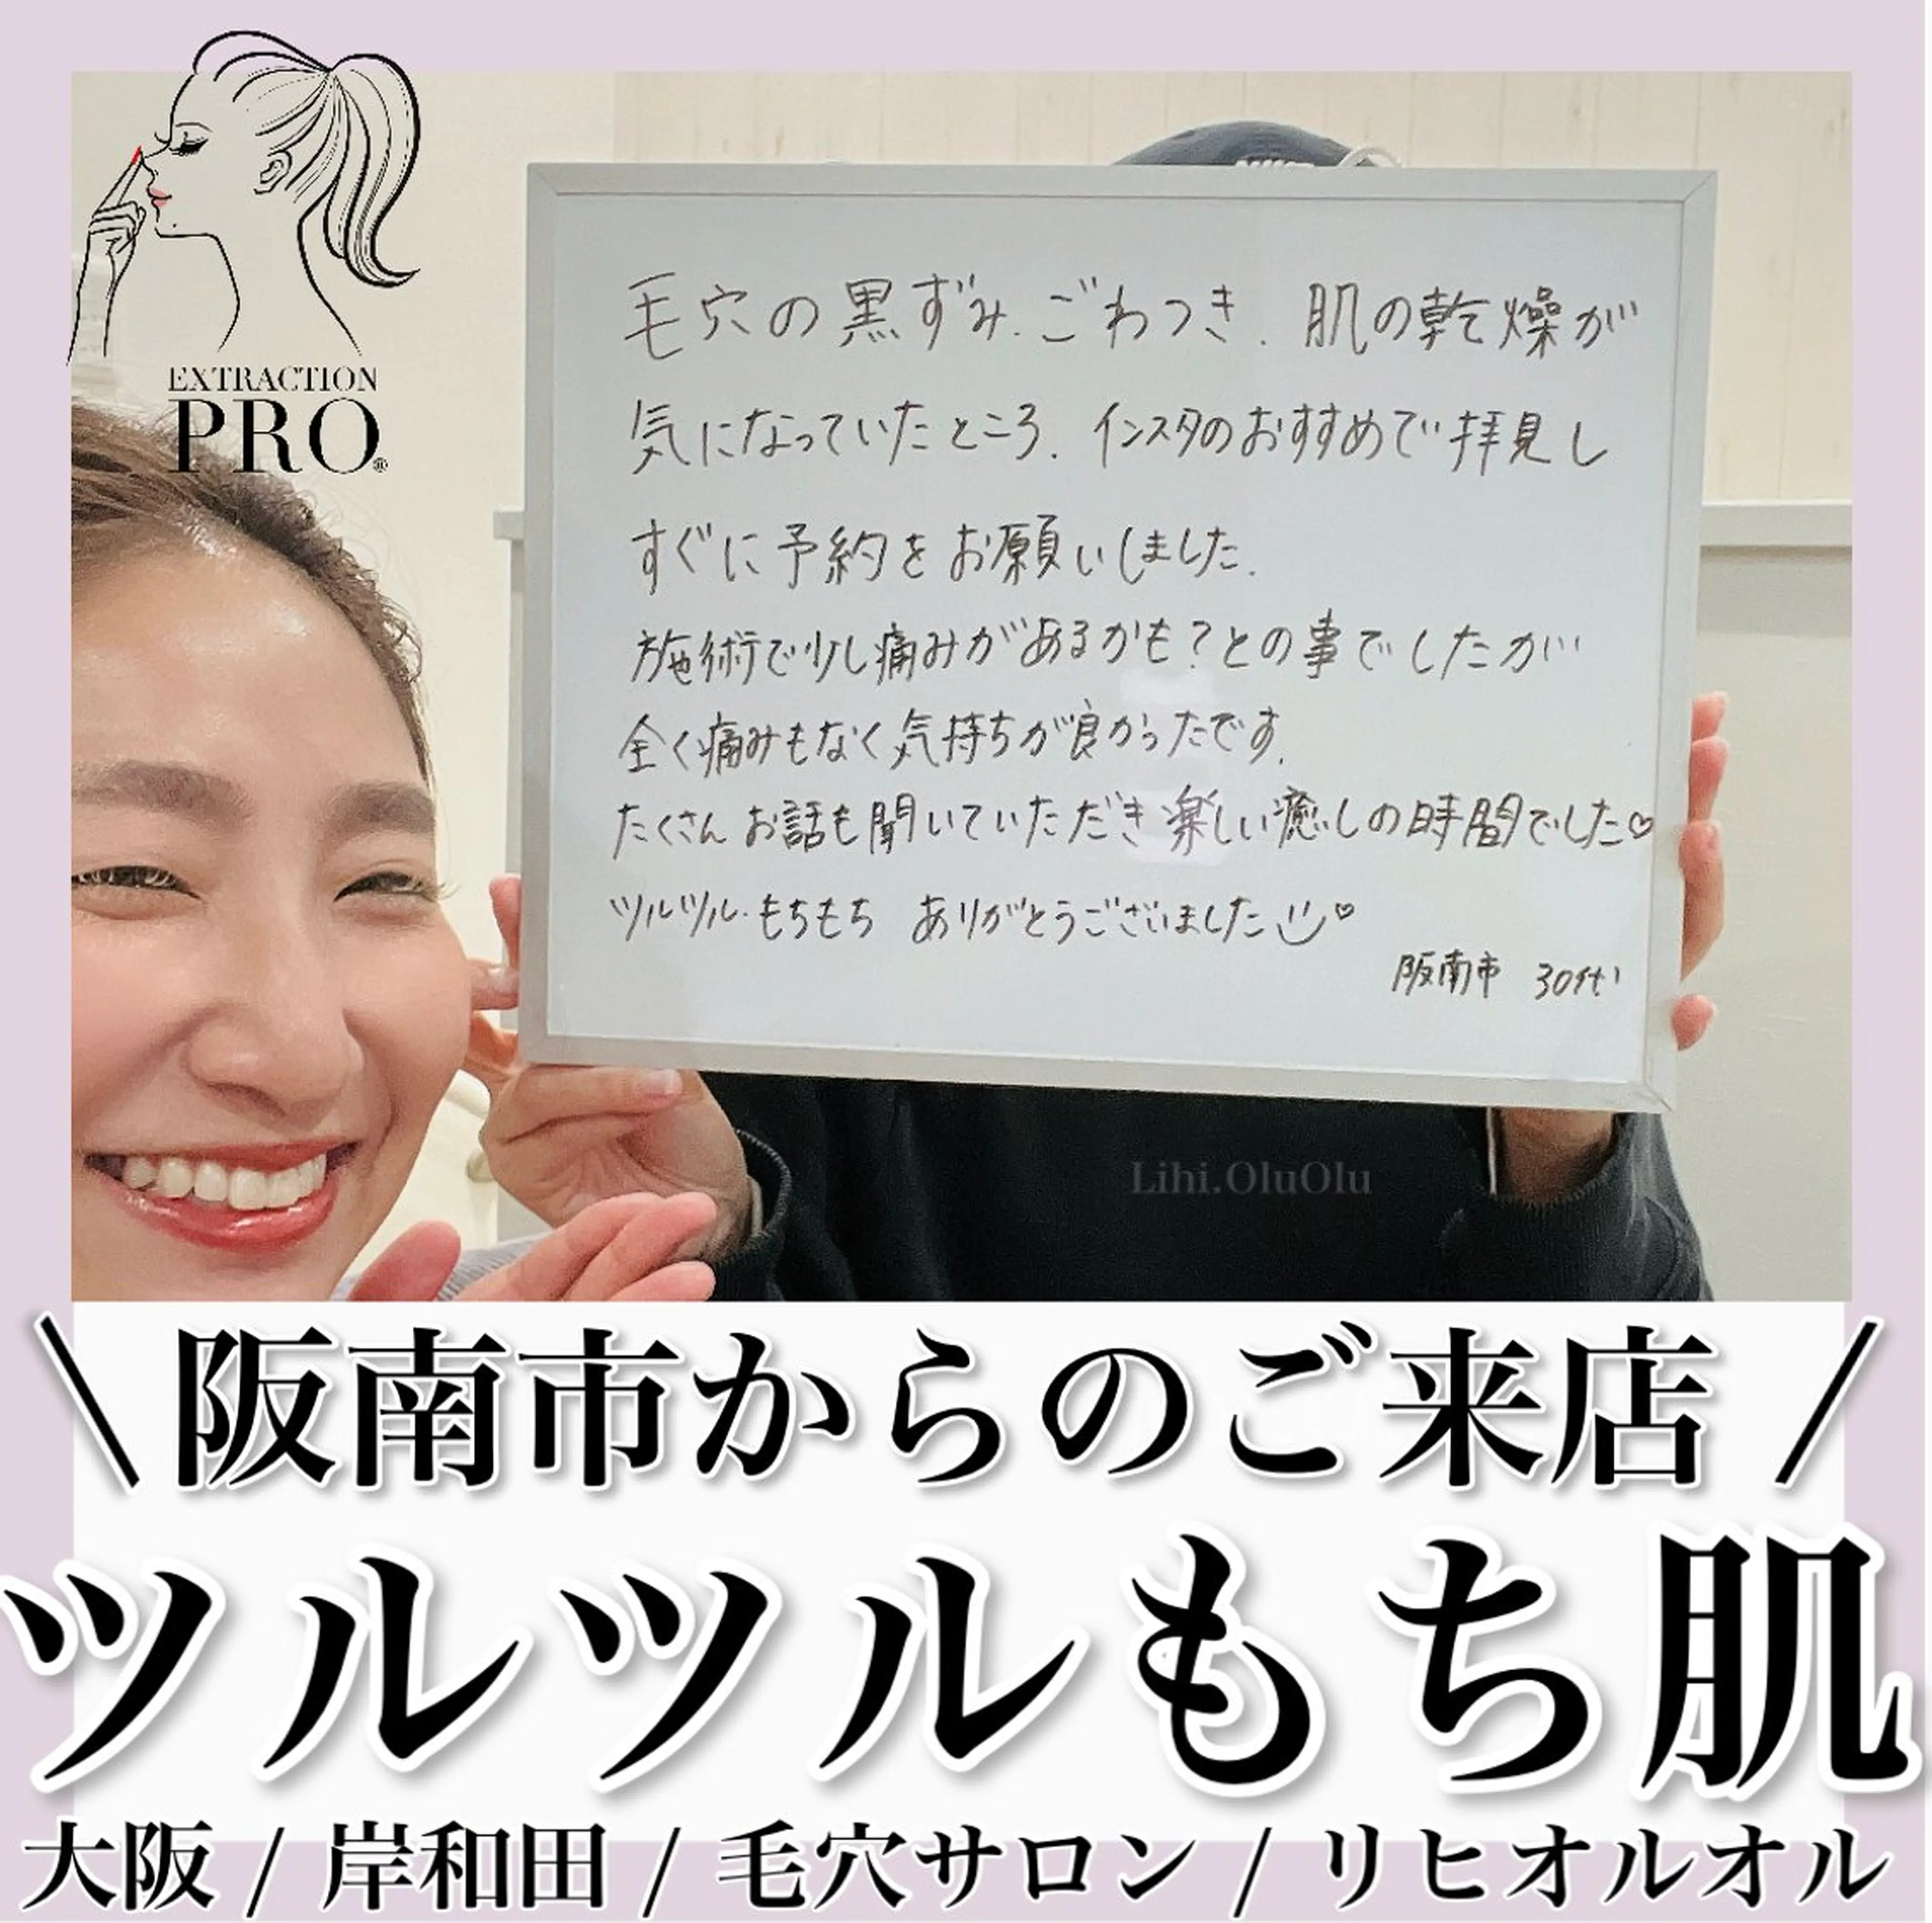 EXTRACTION
PRO®
毛穴の黒ずみ.ごわつき.肌の乾燥が
気になっていたところ.インスタのおすすめで拝見し
すぐに予約をお願いしました.
施術で少し痛みがあるかも?との事でしたが
全く痛みもなく気持ちが良かったです.
たくさんお話も聞いていただき楽しい癒しの時間でした♡
ツルツル.もちもち ありがとうございました ♡
阪南市 30代
Lihi.OluOlu
\ 阪南市からのご来店 /
ツルツルもち肌
大阪 / 岸和田 / 毛穴サロン / リヒオルオル